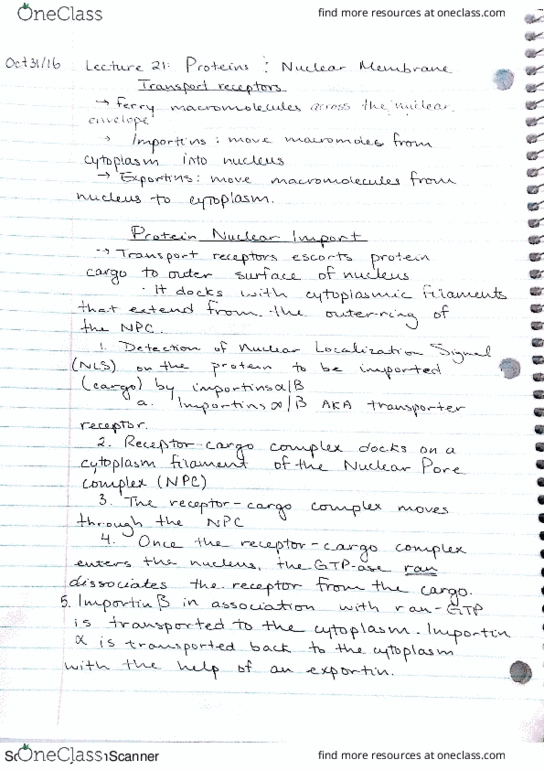 OneClass
find more resources at oneclass.com
Oct 31/16 Lecture 21: Proteins : Nuclear Membrane
Transport receptors
→ ferry macromolecules across the nuclear
envelope
→ Importins : move macromoles from
cytoplasm into nucleus
→ Exportins : move macromolecules from
nucleus to cytoplasm.
Protein Nuclear Import
→ Transport receptors escorts protein
cargo to outer surface of nucleus
· It docks with cytoplasmic filaments
that extend from the outer ring of
the NPC.
1. Detection of Nuclear Localization Signal
(NLS) on the protein to be imported
(cargo) by importins α/β
a. Importins α/β AKA transporter
receptor.
2. Receptor-cargo complex docks on a
cytoplasm filament of the Nuclear Pore
Complex (NPC)
3. The receptor-cargo complex moves
through the NPC
4. Once the receptor-cargo complex
enters the nucleus, the GTP-ase ran
dissociates the receptor from the cargo.
5. Importin β in association with ran-GTP
is transported to the cytoplasm. Importin
α is transported back to the cytoplasm
with the help of an exportin.
OneClass
Scanner
find more resources at oneclass.com